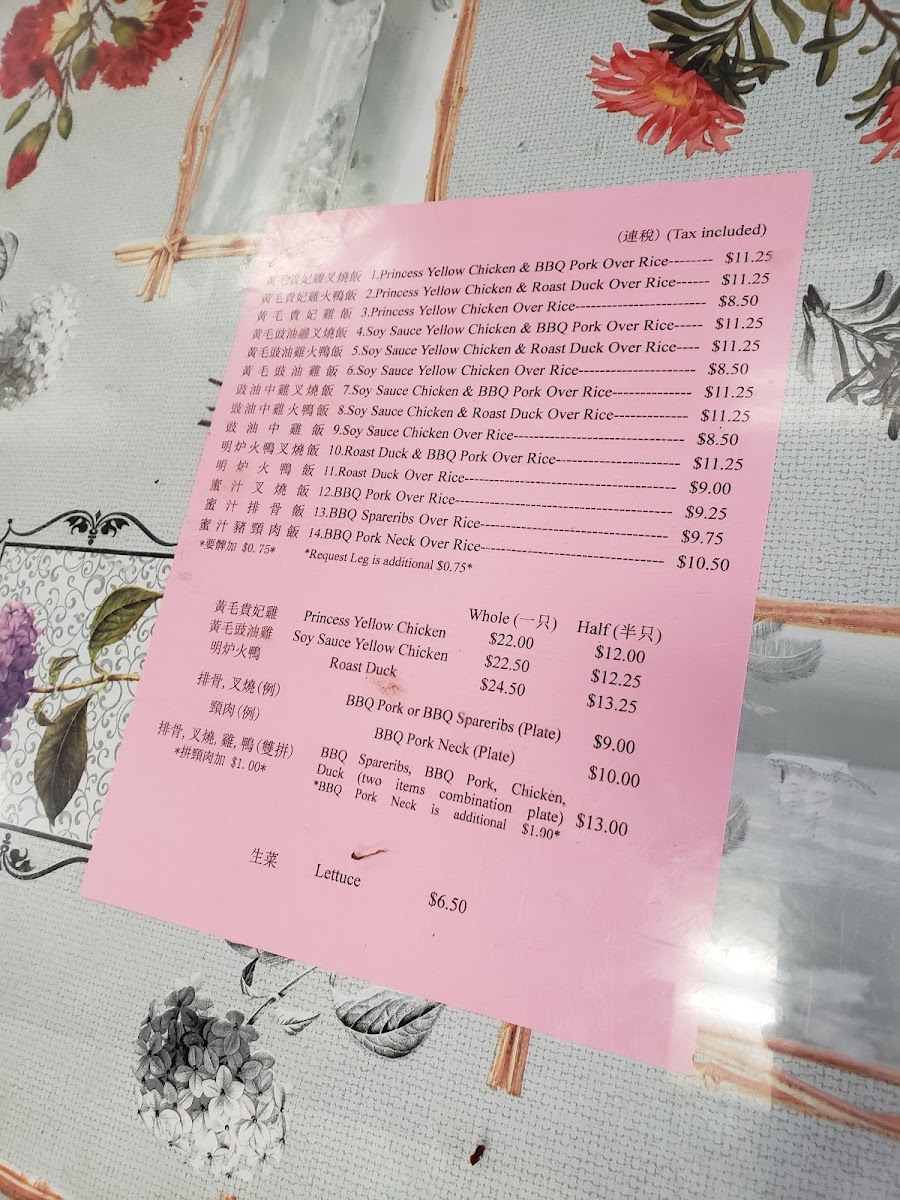 (連稅) (Tax included)
黃毛貴妃雞叉燒飯 1.Princess Yellow Chicken & BBQ Pork Over Rice-------- $11.25
黃毛貴妃雞火鴨飯 2.Princess Yellow Chicken & Roast Duck Over Rice------ $11.25
黃毛貴妃雞飯 3.Princess Yellow Chicken Over Rice------------------------ $8.50
黃毛豉油雞叉燒飯 4.Soy Sauce Yellow Chicken & BBQ Pork Over Rice----- $11.25
黃毛豉油雞火鴨飯 5.Soy Sauce Yellow Chicken & Roast Duck Over Rice---- $11.25
黃毛豉油雞飯 6.Soy Sauce Yellow Chicken Over Rice---------------------- $8.50
豉油中雞叉燒飯 7.Soy Sauce Chicken & BBQ Pork Over Rice--------------- $11.25
豉油中雞火鴨飯 8.Soy Sauce Chicken & Roast Duck Over Rice-------------- $11.25
豉油中雞飯 9.Soy Sauce Chicken Over Rice-------------------------------- $8.50
明炉火鴨叉燒飯 10.Roast Duck & BBQ Pork Over Rice----------------------- $11.25
明炉火鴨飯 11.Roast Duck Over Rice---------------------------------------- $9.00
蜜汁叉燒飯 12.BBQ Pork Over Rice----------------------------------------- $9.25
蜜汁排骨飯 13.BBQ Spareribs Over Rice----------------------------------- $9.75
蜜汁豬頸肉飯 14.BBQ Pork Neck Over Rice---------------------------------- $10.50
*要髀加 $0.75* *Request Leg is additional $0.75*
Whole (一只) Half (半只)
黃毛貴妃雞 Princess Yellow Chicken $22.00 $12.00
黃毛豉油雞 Soy Sauce Yellow Chicken $22.50 $12.25
明炉火鴨 Roast Duck $24.50 $13.25
排骨,叉燒(例) BBQ Pork or BBQ Spareribs (Plate) $9.00
頸肉(例) BBQ Pork Neck (Plate) $10.00
排骨,叉燒,雞,鴨(雙拼) BBQ Spareribs, BBQ Pork, Chicken,
Duck (two items combination plate) $13.00
*拼頸肉加 $1.00* *BBQ Pork Neck is additional $1.00*
生菜 Lettuce $6.50